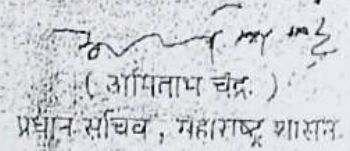 ( अमिताभ चंद्र. )
प्रधान सचिव, महाराष्ट्र शासन.